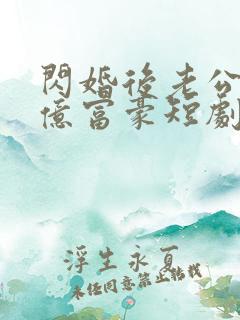 閃婚後老公
億富豪短劇
浮生永夏
未經同意禁止轉載